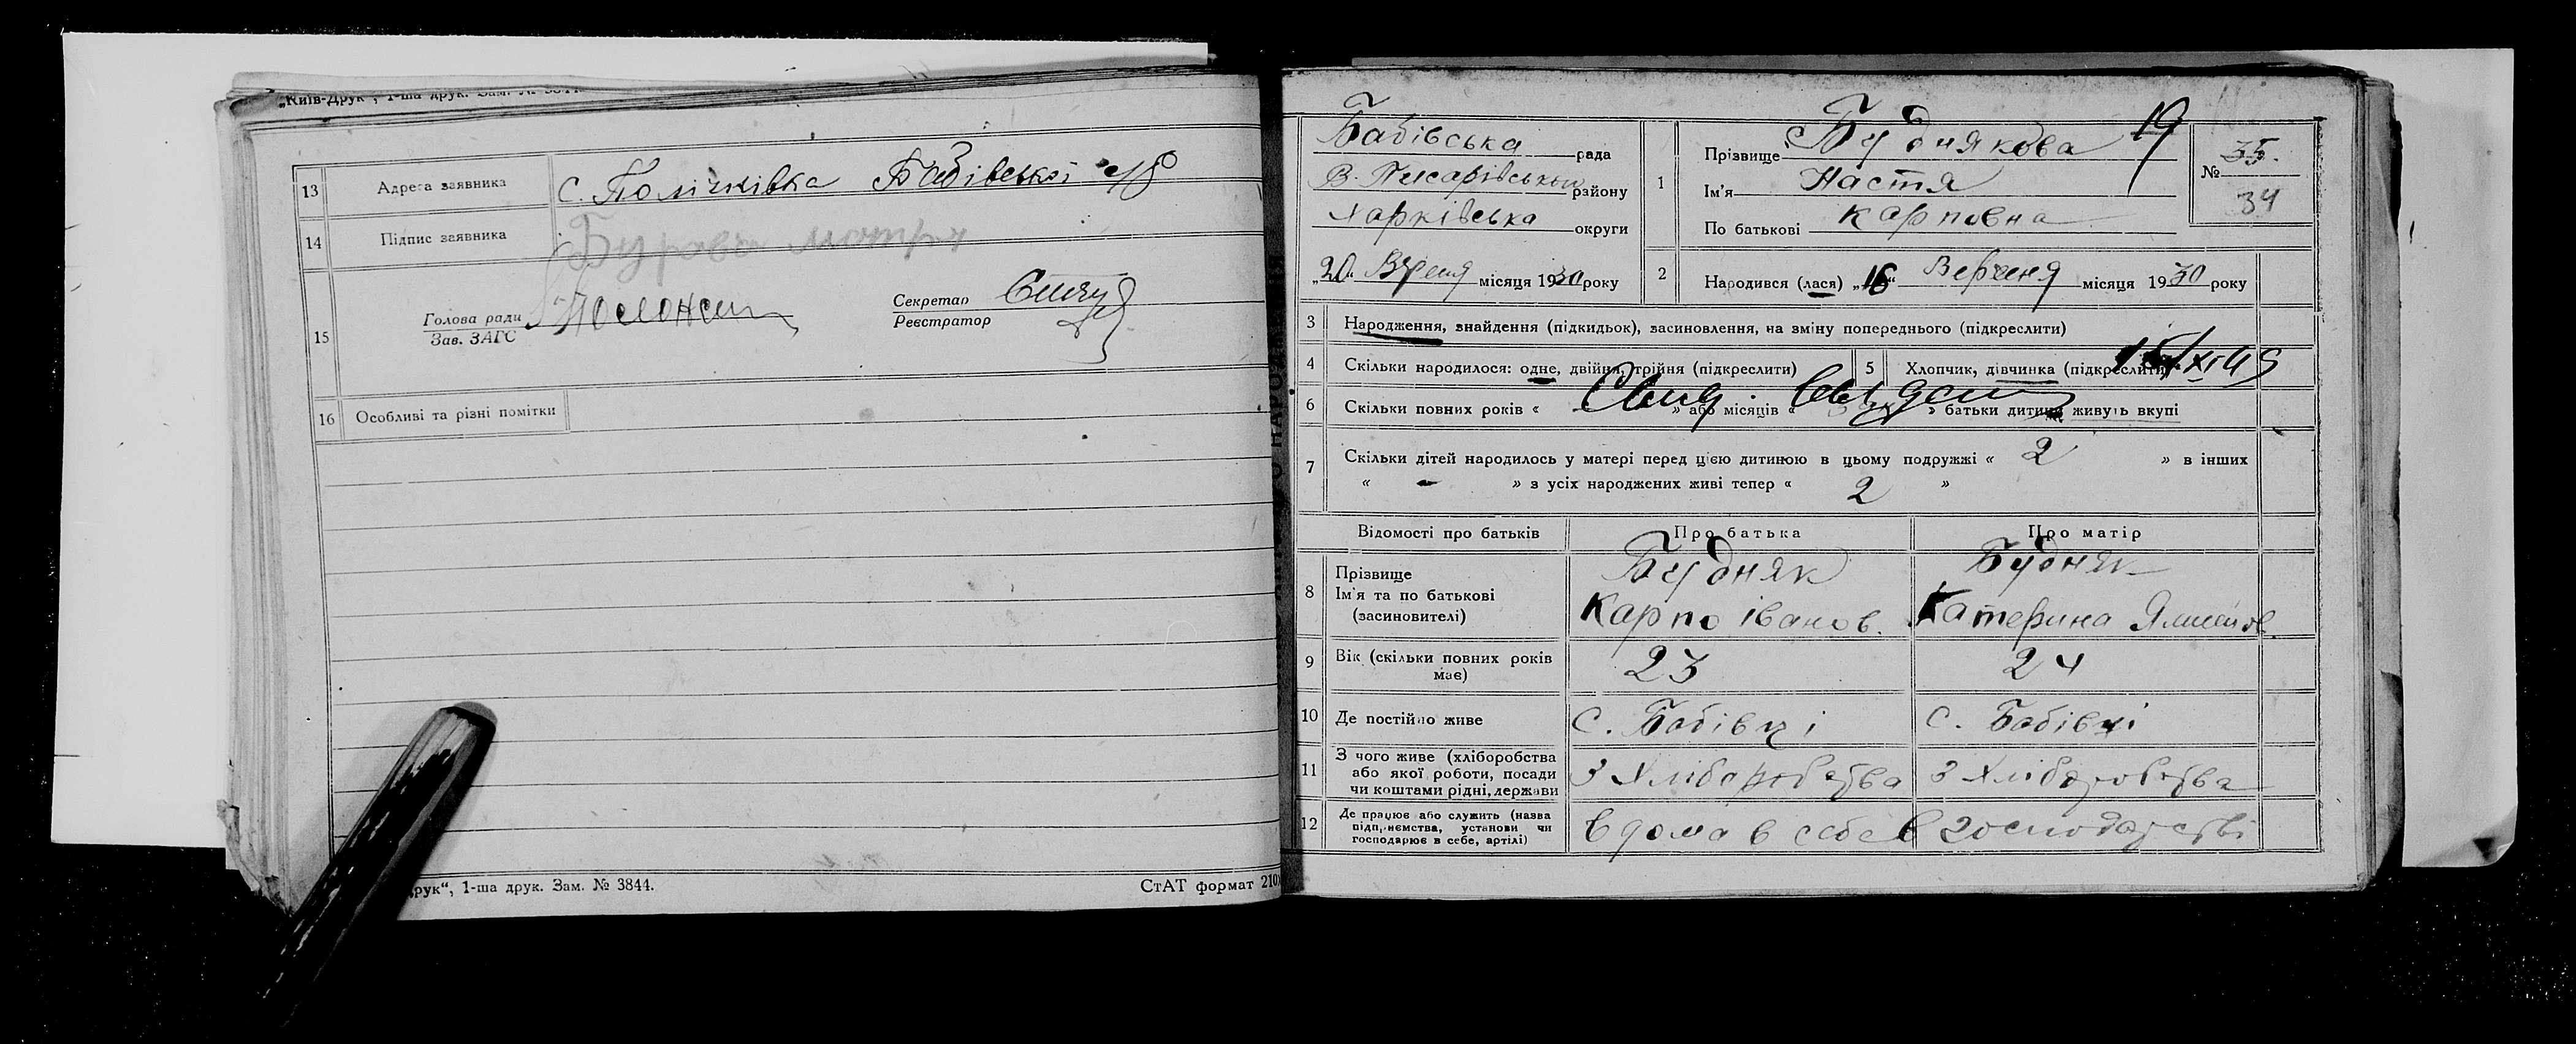 „Київ-Друк“, 1-ша друк. Зам. №
13 Адреса заявника с. Полічківка Бабівської с/р
14 Підпис заявника Бурова Мотря
15 Голова ради
Зав. ЗАГС
Секретар
Реєстратор
16 Особливі та різні помітки
друк“, 1-ша друк. Зам. № 3844.
СтАТ формат 210
Бабівська рада
В. Писарівського району
Харківська округи
„20“ Вресня місяця 1930 року
1 Прізвище Буднякова 19
Ім’я Настя
По батькові Карповна
№ 35.
34
2 Народився (лася) „16“ Верченя місяця 1930 року
3 Народження, знайдення (підкидьок), засиновлення, на зміну попереднього (підкреслити)
4 Скільки народилося: одне, двійня, трійня (підкреслити)
5 Хлопчик, дівчинка (підкреслити)
6 Скільки повних років « » або місяців « » батьки дитини живуть вкупі
7 Скільки дітей народилось у матері перед цією дитиною в цьому подружжі « 2 » в інших
« - » з усіх народжених живі тепер « 2 »
Відомості про батьків Про батька Про матір
8 Прізвище
Ім’я та по батькові
(засновителі)
Будняк
Карпо Іванов.
Будняк
Катерина
9 Вік (скільки повних років має) 23 24
10 Де постійно живе с. Бабівці с. Бабівці
11 З чого живе (хліборобства
або якої роботи, посади
чи коштами рідні, держави
З Хліборобства З Хліборобства
12 Де працює або служить (назва
підприємства, установи чи
господарює в себе, артілі)
в дома в себе в господарстві